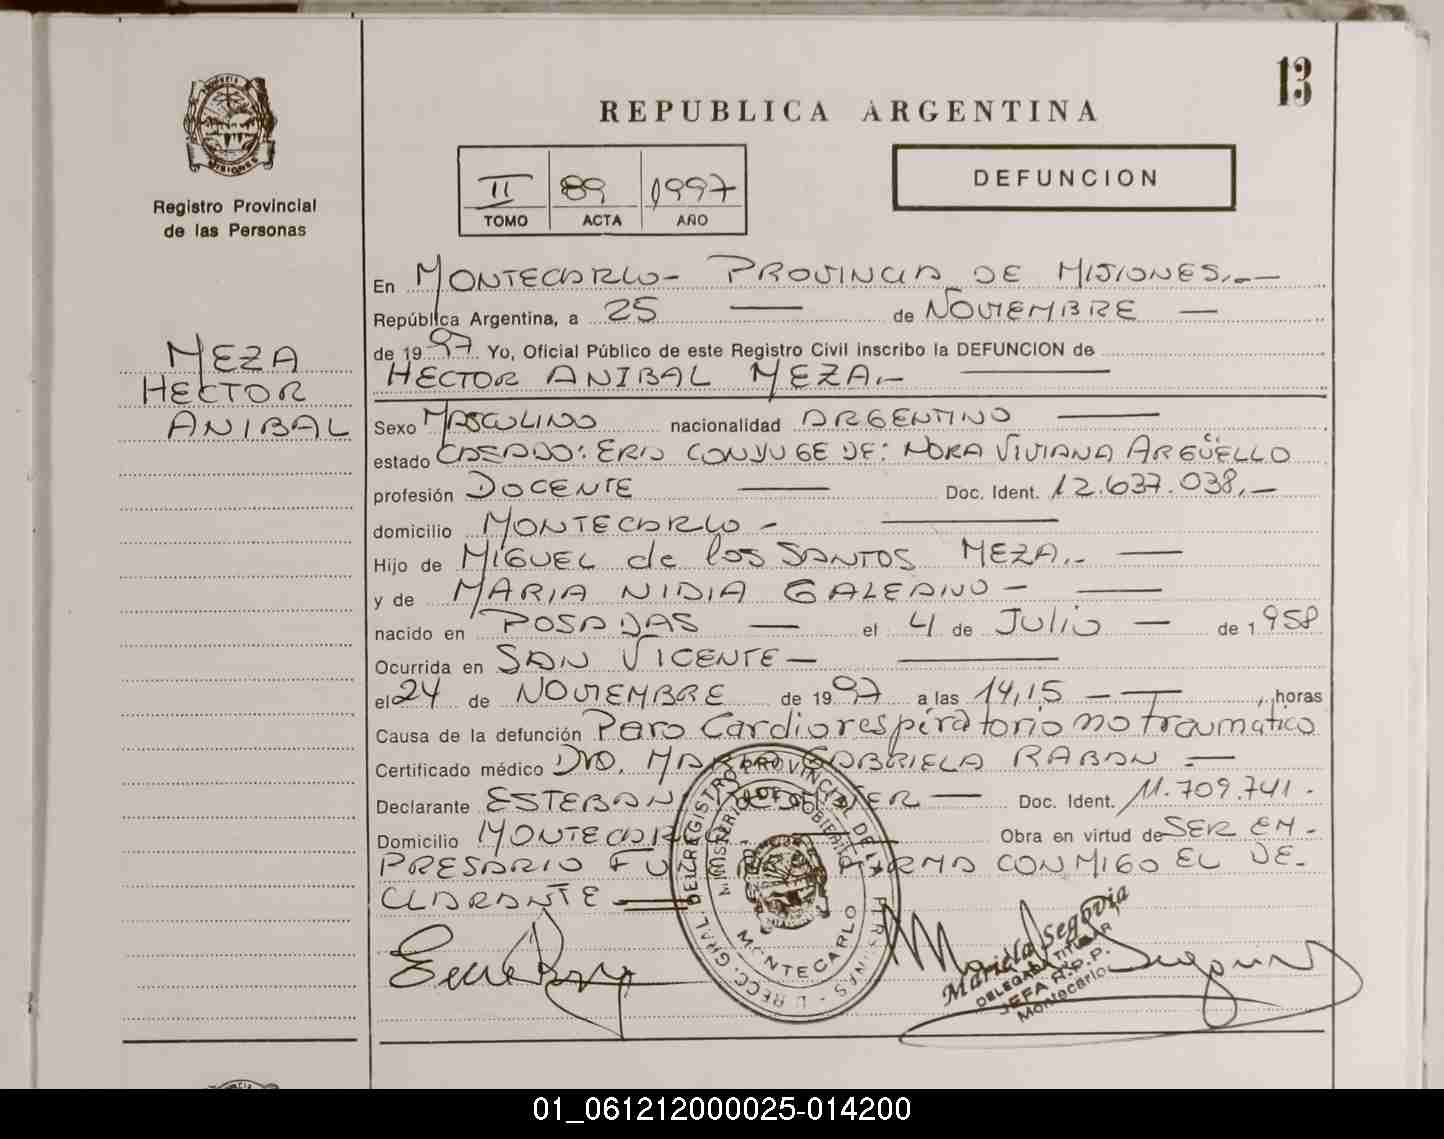 13
REPUBLICA ARGENTINA
MISIONES
Registro Provincial
de las Personas
II 89 1997
TOMO ACTA AÑO
DEFUNCION
MEZA
HECTOR
ANIBAL
En MONTECARLO- PROVINCIA DE MISIONES.-
República Argentina, a 25 — de NOVIEMBRE —
de 1997. Yo, Oficial Público de este Registro Civil inscribo la DEFUNCION de
HECTOR ANIBAL MEZA.-
Sexo MASCULINO nacionalidad ARGENTINO —
estado CASADO: ERA CONYUGE DE: NORA VIVIANA ARGÜELLO
profesión DOCENTE — Doc. Ident. 12.637.038.-
domicilio MONTECARLO -
Hijo de MIGUEL de los SANTOS MEZA.- —
y de MARIA NIDIA GALEANO - —
nacido en POSADAS — el 4 de Julio — de 1958
Ocurrida en SAN VICENTE —
el 24 de NOVIEMBRE de 1997 a las 14,15 — , horas
Causa de la defunción Paro Cardiorespiratorio no traumático
Certificado médico Dra. MARIA GABRIELA RABAN —
Declarante ESTEBAN — Doc. Ident. 11.709.741.
Domicilio MONTECARLO Obra en virtud de SER EM-
PRESARIO FIRMA CONMIGO EL DE-
CLARANTE —
DIRECC. GRAL. DEL REGISTRO PROVINCIAL DE LAS PERSONAS
MINISTERIO DE GOBIERNO
MONTECARLO
Mariela Segovia
DELEGADA TITULAR
JEFA R.P.P.
Montecarlo
01_061212000025-014200